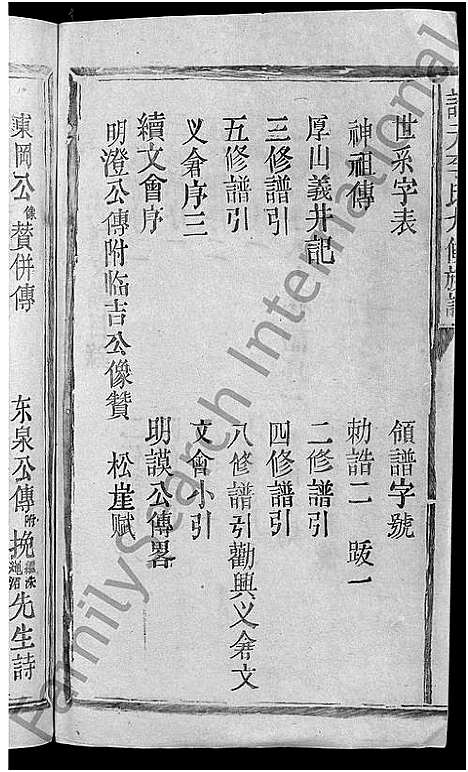 世系字表　領譜字號
神祖傳　勅誥二　跋一
厚山義井記　二修譜引
三修譜引　四修譜引
五修譜引　八修譜引勸興义會文
义會序三　文會小引
續文會序　明謨公傳畧
明澄公傳附临吉公像贊　松崖赋
東岡公像賛併傳　东泉公傳附挽先生詩
FamilySearch International